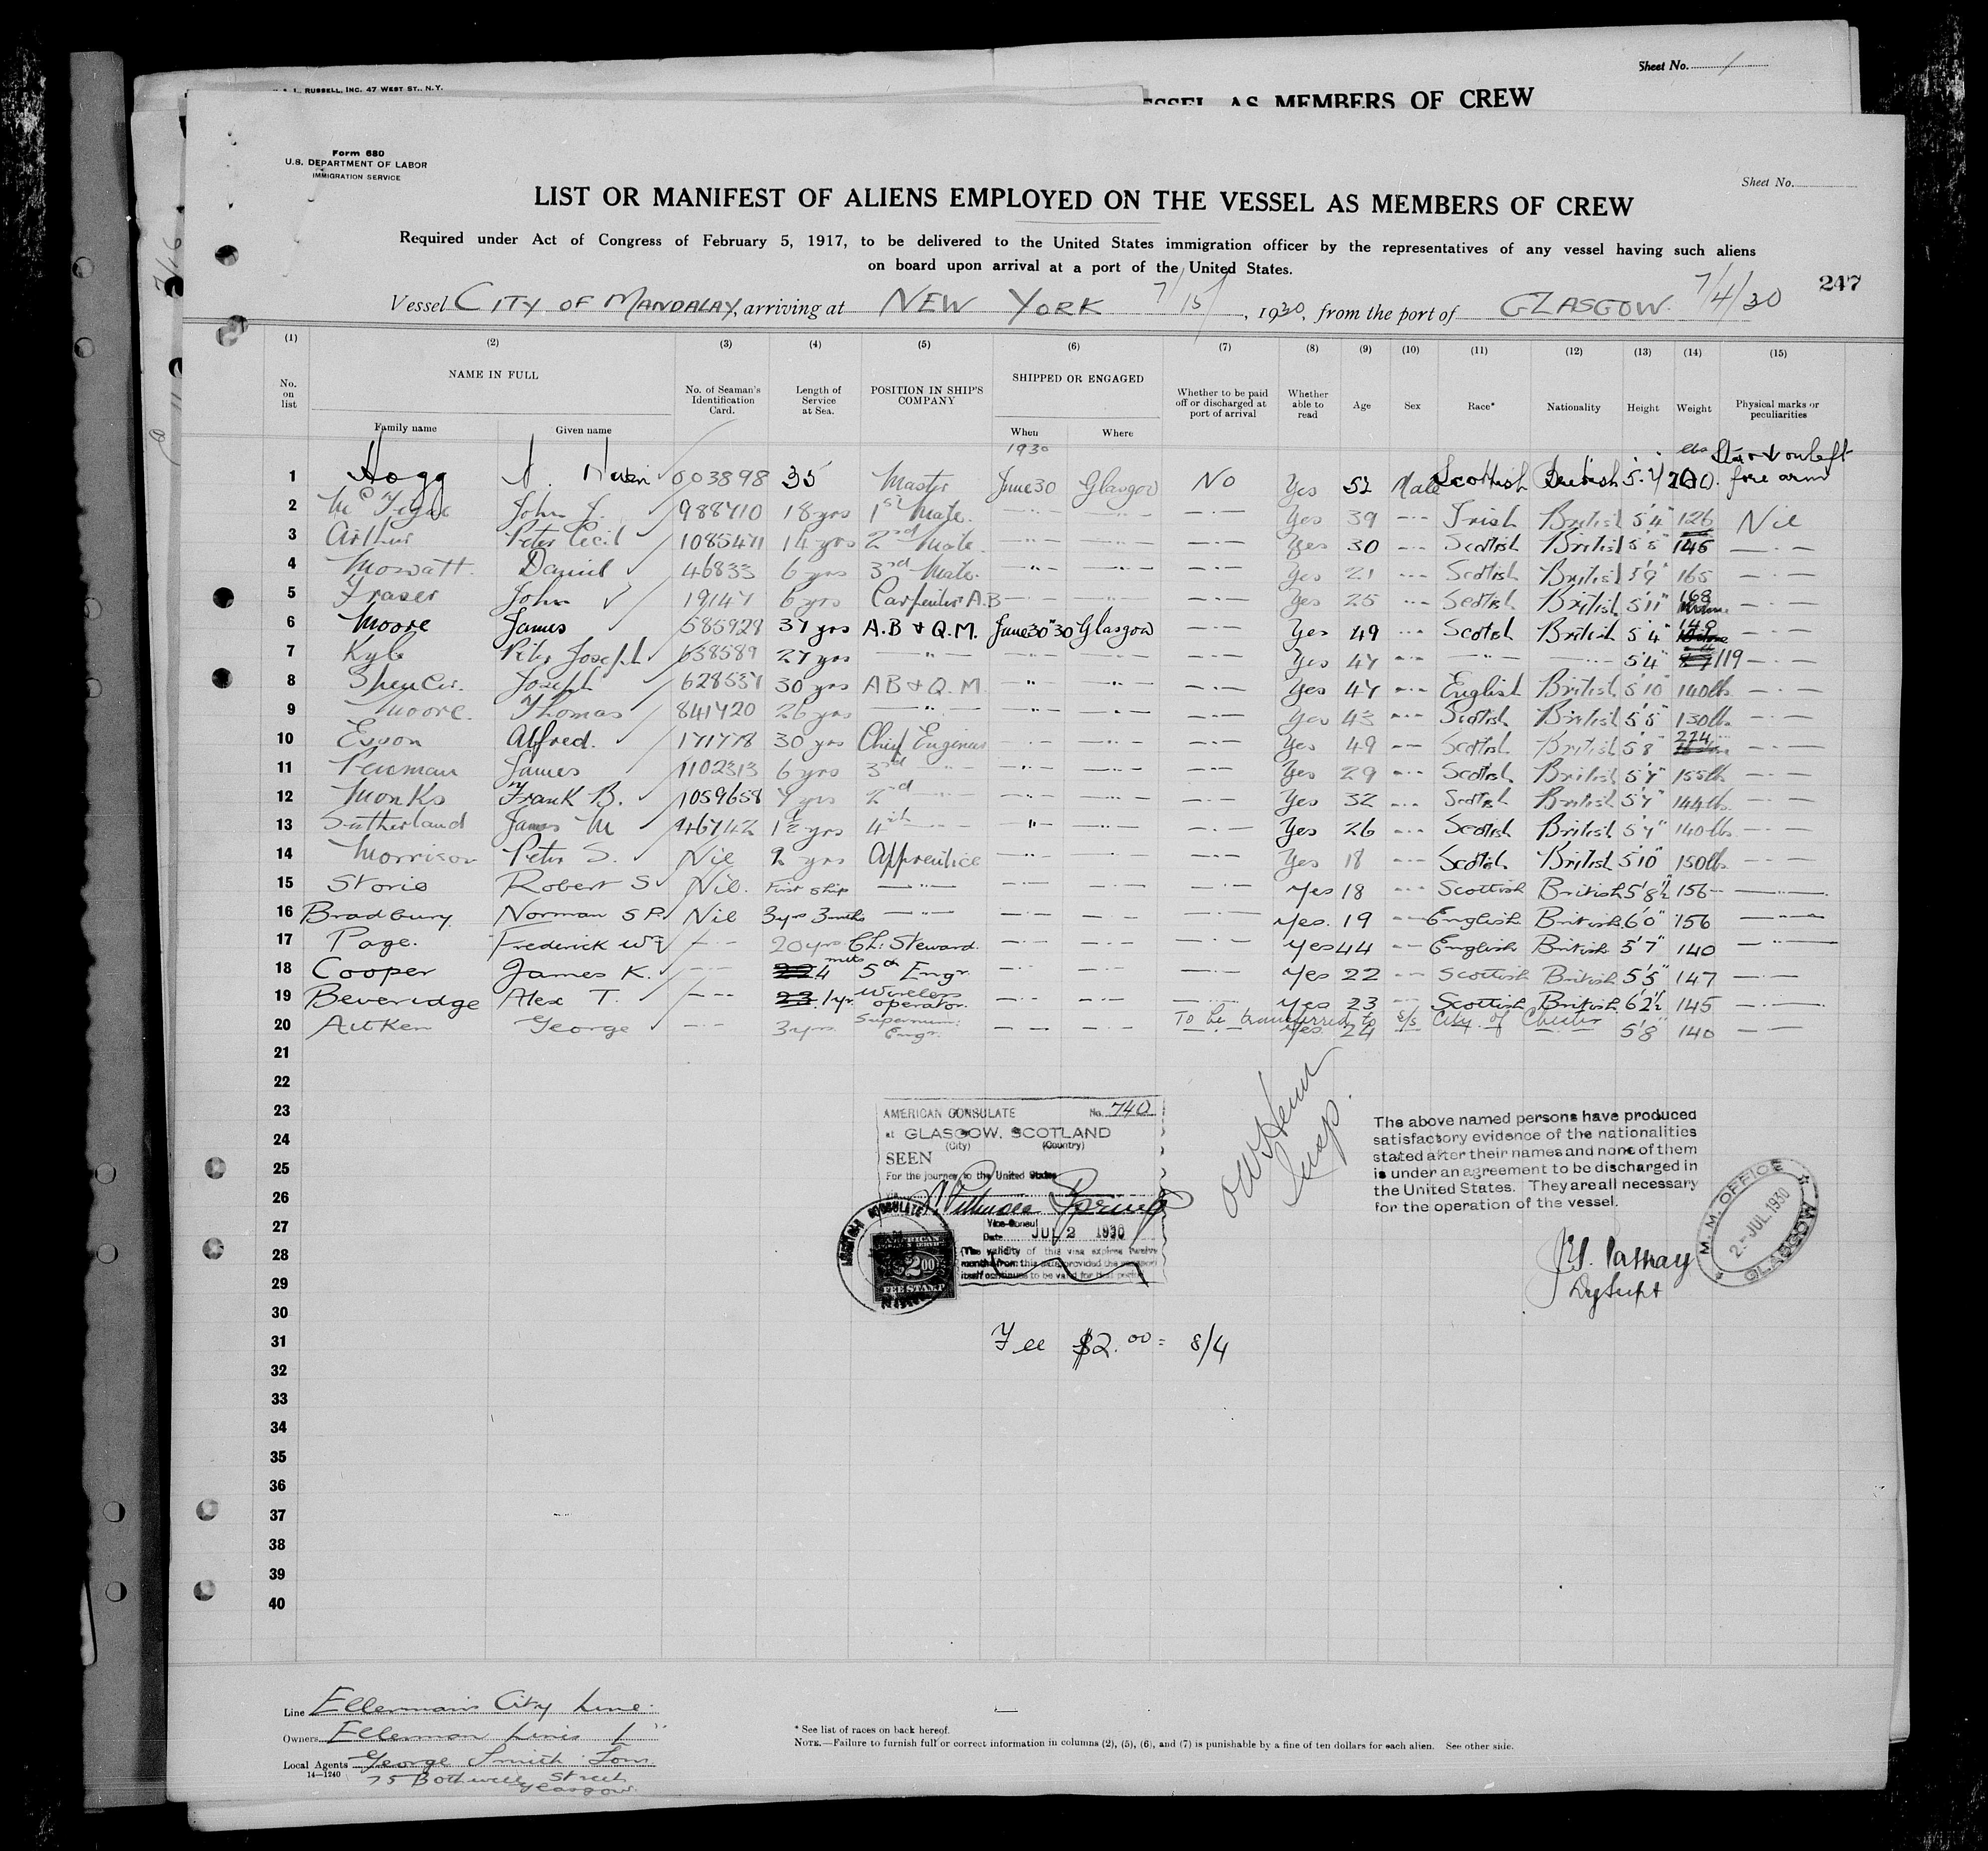 Sheet No. 1
RUSSELL, INC. 47 WEST ST., N.Y.
AS MEMBERS OF CREW
Form 680
U.S. DEPARTMENT OF LABOR
IMMIGRATION SERVICE
Sheet No.
LIST OR MANIFEST OF ALIENS EMPLOYED ON THE VESSEL AS MEMBERS OF CREW
Required under Act of Congress of February 5, 1917, to be delivered to the United States immigration officer by the representatives of any vessel having such aliens
on board upon arrival at a port of the United States.
247
Vessel CITY OF MANDALAY, arriving at NEW YORK 7/15/, 1930, from the port of GLASGOW. 7/4/30
(1) (2) (3) (4) (5) (6) (7) (8) (9) (10) (11) (12) (13) (14) (15)
No. on list NAME IN FULL No. of Seaman's Identification Card. Length of Service at Sea. POSITION IN SHIP'S COMPANY SHIPPED OR ENGAGED Whether to be paid off or discharged at port of arrival Whether able to read Age Sex Race* Nationality Height Weight Physical marks or peculiarities
Family name Given name When Where
1930 lbs
1 Hogg 003898 35 Master June 30 Glasgow No Yes 52 Male Scottish British Star on left fore arm
2 John J. 988710 18 yrs 1st Mate. Yes 39 Irish British 5'4" 126 Nil
3 Arthur Peter Cecil 1085471 14 yrs 2nd Mate Yes 30 Scottish British 5'5" 145
4 Mowatt. Daniel 46833 6 yrs 3rd Mate. Yes 21 Scottish British 5'9" 165
5 Fraser John 19147 6 yrs Carpenter A.B Yes 25 Scottish British 5'11" 168
6 Moore James 585928 37 yrs A.B & Q.M. June 30" 30 Glasgow Yes 49 Scotish British 5'4" 149
7 Kyle Peter Joseph 638589 27 yrs Yes 47 5'4" 119
8 Spencer. Joseph 628537 30 yrs AB & Q.M. Yes 47 English British 5'10" 140lbs
9 Moore. Thomas 841720 26 yrs Yes 43 Scotish British 5'5" 130lbs
10 Alfred. 171778 30 yrs Chief Engineer Yes 49 Scotish British 5'8" 224
11 Penman James 1102313 6 yrs 3rd Yes 29 Scotish British 5'7" 155lbs
12 Monks Frank B. 1059658 7 yrs 2nd Yes 32 Scotish British 5'7" 144lbs.
13 Sutherland James M 46742 1½ yrs 4th Yes 26 Scotish British 5'7" 140lbs.
14 Morrison Peter S. Nil 2 yrs Apprentice Yes 18 Scotish British 5'10" 150lbs.
15 Storie Robert S. Nil. First ship Yes 18 Scottish British 5'8½" 156
16 Bradbury Norman S P. Nil 3yrs 3mths Yes. 19 English British 6'0" 156
17 Page. Frederick Wm 20 yrs Ch: Steward. Yes 44 English British 5'7" 140
18 Cooper James K. 4 mths 5th Engr. Yes 22 Scottish British 5'5" 147
19 Beveridge Alex T. 1yr. Wireless operator. Yes 23 Scottish British 6'2½ 145
To be transferred to s/s City of Chester
20 Aitken George 3yrs. Supernum: Engr. Yes. 24 5'8" 140
21
22
23
24
25
26
27
28
29
30
31
32
33
34
35
36
37
38
39
40
AMERICAN CONSULATE No. 740
at GLASGOW, SCOTLAND
(City) (Country)
SEEN
For the journey to the United States
Vice-Consul
Date JUL 2 1930
(The validity of this visa expires twelve
months from this date provided the passport
itself continues to be valid for that period.)
AMERICAN CONSULATE
AMERICAN
$2.00
FEE STAMP
Insp.
The above named persons have produced
satisfactory evidence of the nationalities
stated after their names and none of them
is under an agreement to be discharged in
the United States. They are all necessary
for the operation of the vessel.
Dy Supt
M. M. OFFICE
2-JUL.1930
GLASGOW
Fee $2.00 = 8/4
Line Ellerman's City Line.
Owners Ellerman Lines L
Local Agents George Smith Sons.
75 Bothwell Street
Glasgow.
14—1240
* See list of races on back hereof.
NOTE.—Failure to furnish full or correct information in columns (2), (5), (6), and (7) is punishable by a fine of ten dollars for each alien. See other side.